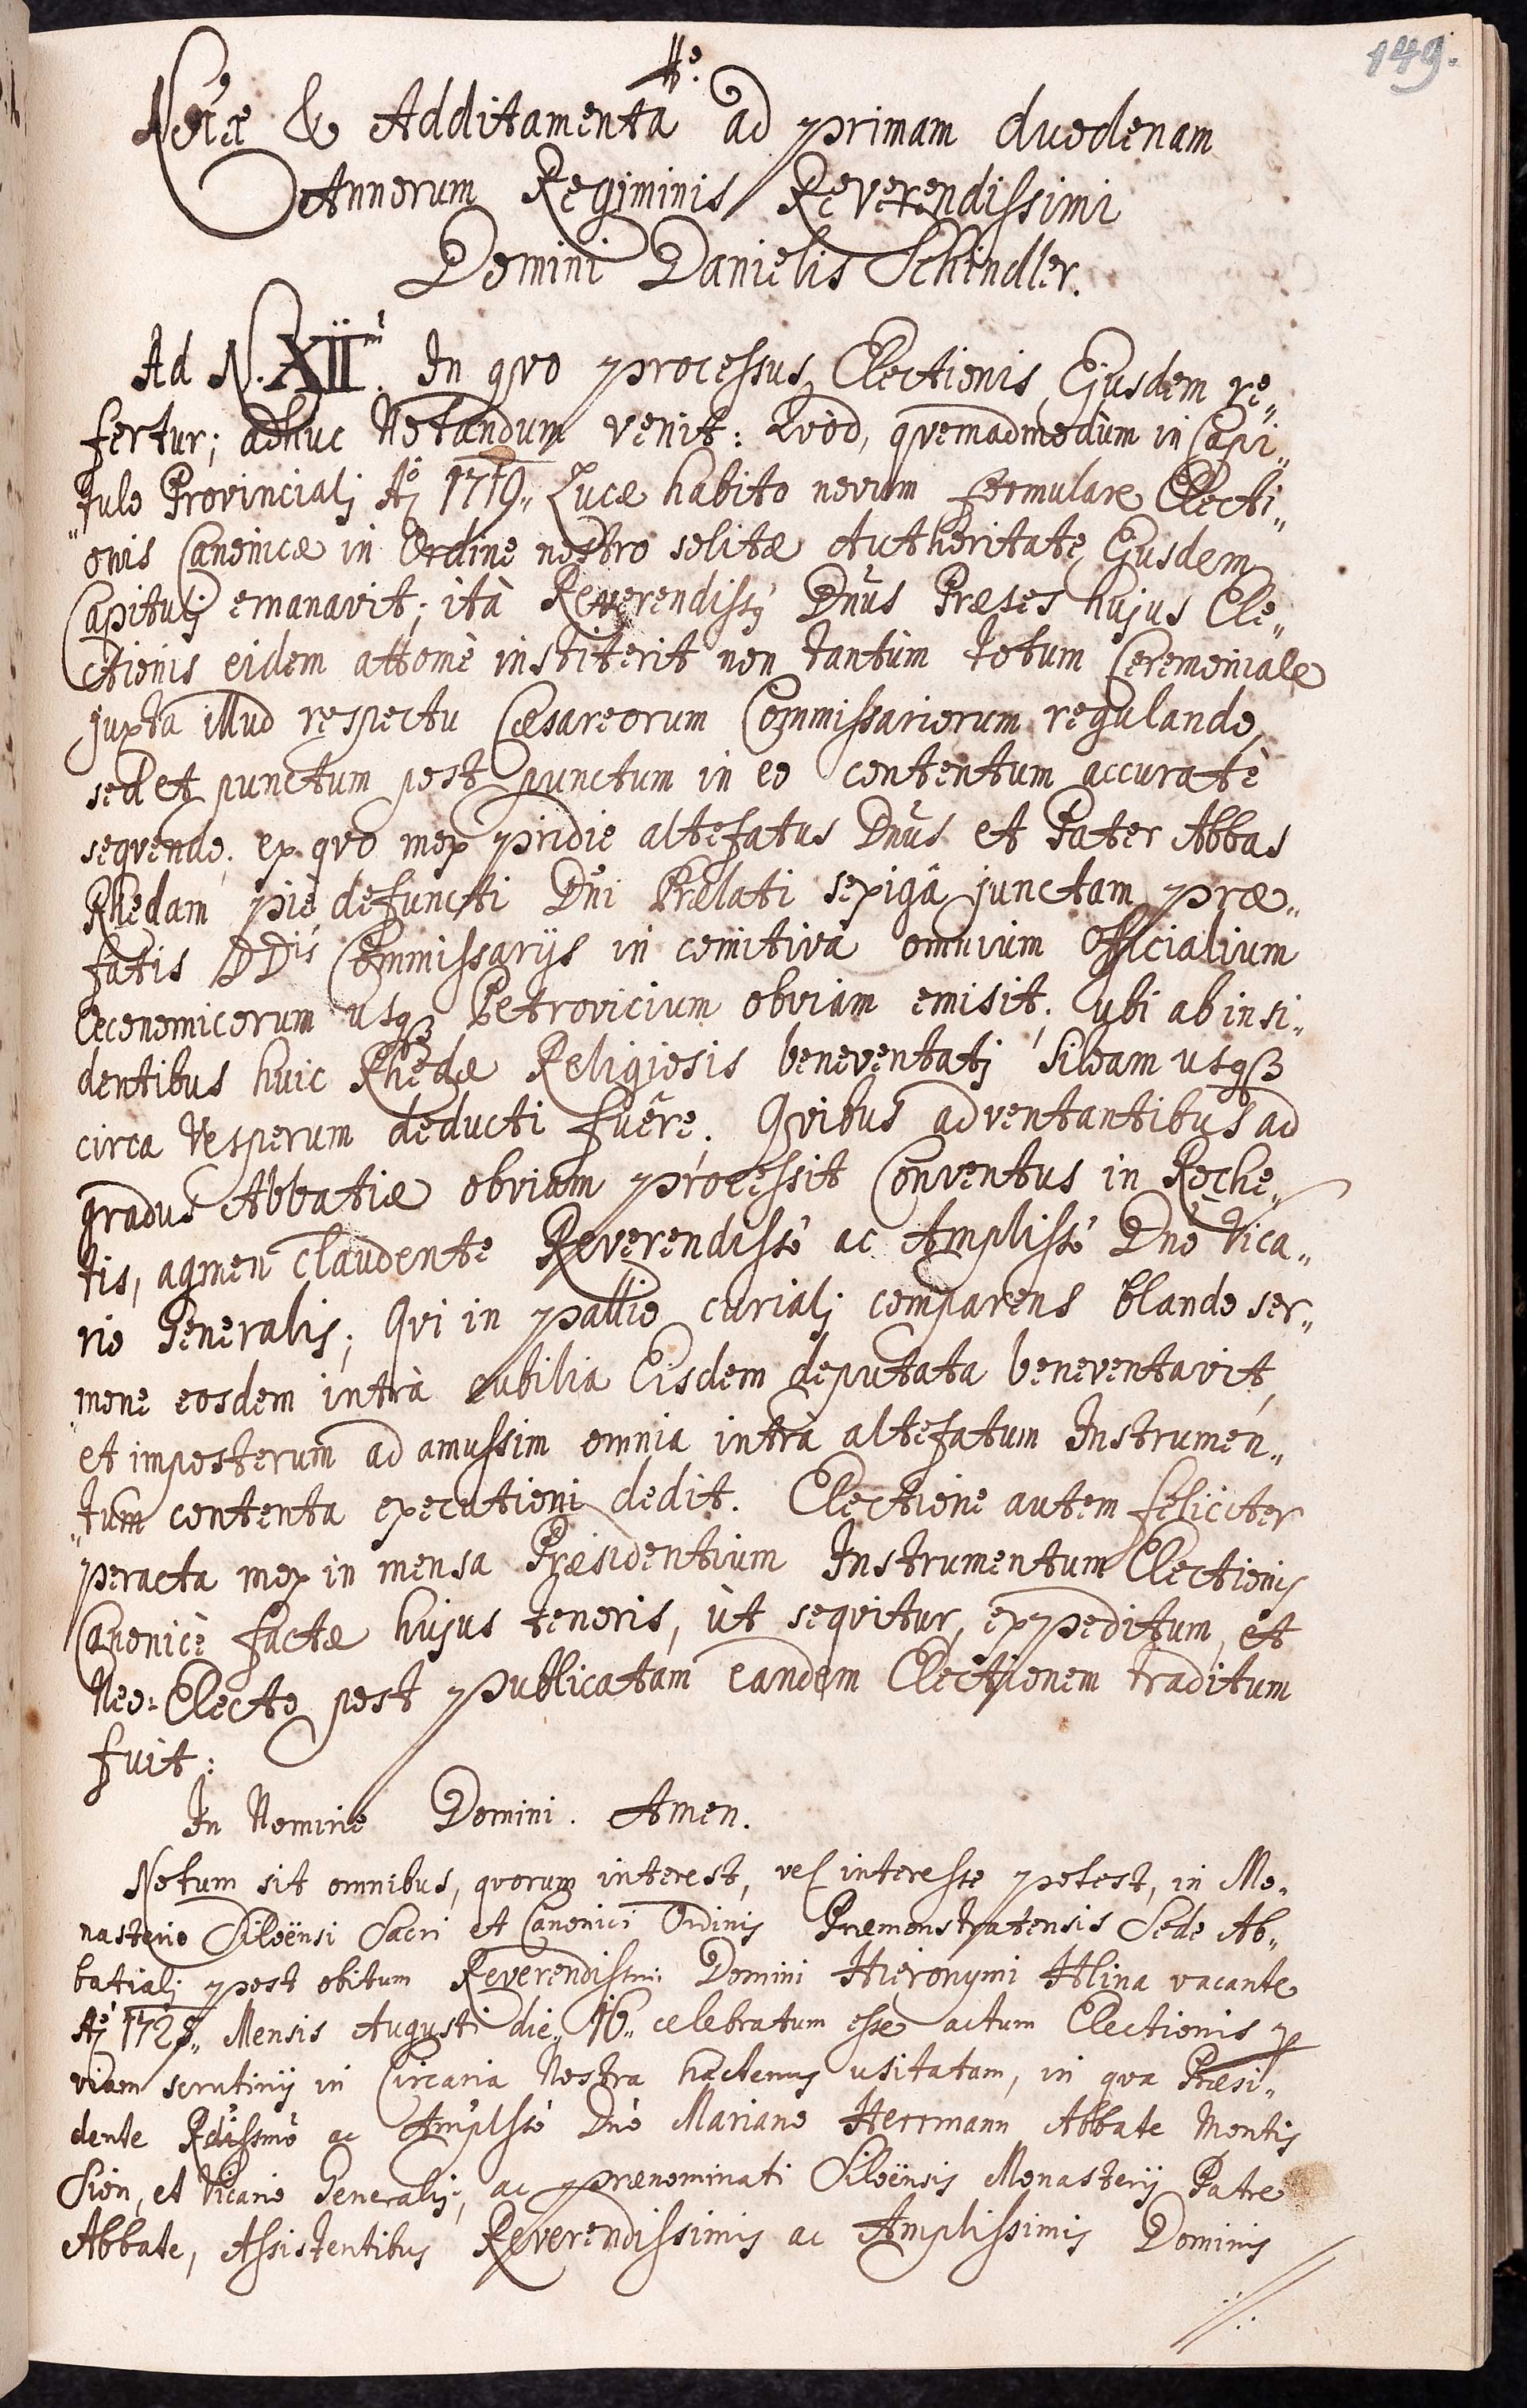 149.
Notæ & Additamenta ad primam duodenam
Annorum Regiminis Reverendissimi
Domini Danielis Schindler.
Ad N. XII. In qvo processus Electionis Ejusdem re„
fertur; adhuc Notandum venit: Qvòd, qvemadmodùm in Capi„
„tulo Provincialj Aõ 1719„ Lucæ habito novum formulare Electi„
onis Canonicæ in Ordine nostro solitæ Authoritate Ejusdem
Capitulj emanavit; ità Reverendiss9 Dnus Præses hujus Ele„
ctionis eidem attomè institerit non tantùm totum Ceremoniale
juxta illud respectu Cæsareorum Commissariorum regulando,
sed et punctum post punctum in eo contentum accuratè
seqvendo. ex qvo mox pridie altefatus Dnus et Pater Abbas
Rhedam piè defuncti Dni Prælati sexigâ junctam præ„
fatis DDis Commissarijs in comitivâ omnium Officialium
Oeconomicorum usq3 Petrovicium obviam emisit. Ubi ab insi„
dentibus huic Rhedæ Religiosis beneventatj Siloam usq3
circa Vesperum deducti fuêre. Qvibus adventantibus ad
gradus Abbatiæ obviam processit Conventus in Roche„
tis, agmen claudente Reverendissõ ac Amplissõ Dno Vica„
rio Generalis; Qvi in pallio curialj comparens blando ser„
„mone eosdem intrà cubilia Eisdem deputata beneventavit,
et imposterum ad amussim omnia intrà altefatum Instrumen„
„tum contenta executioni dedit. Electione autem feliciter
peracta mox in mensa Præsidentium Instrumentum Electionis
Canonicè factæ hujus tenoris, ùt seqvitur, expeditum, et
Neo: Electo post publicatam eandem Electionem traditum
fuit:
In Nomine Domini. Amen.
Notum sit omnibus, qvorum interest, vel interesse potest, in Mo„
nasterio Siloënsi Sacri et Canonici Ordinis Præmonstratensis Sede Ab„
batialj post obitum Reverendissmi Domini Hieronymi Hlina vacante
Aõ 1728„ Mensis Augusti die 16„ celebratum esse actum Electionis p
viam scrutinij in Circaria Nostra hactenus usitatam, in qva Præsi„
dente Rdissmo ac Amplsso Dno Mariano Herrmann Abbate Montis
Sion, et Vicario Generalj, ac prænominati Siloënsis Monasterij Patre
Abbate, Assistentibus Reverendissimis ac Amplissimis Dominis